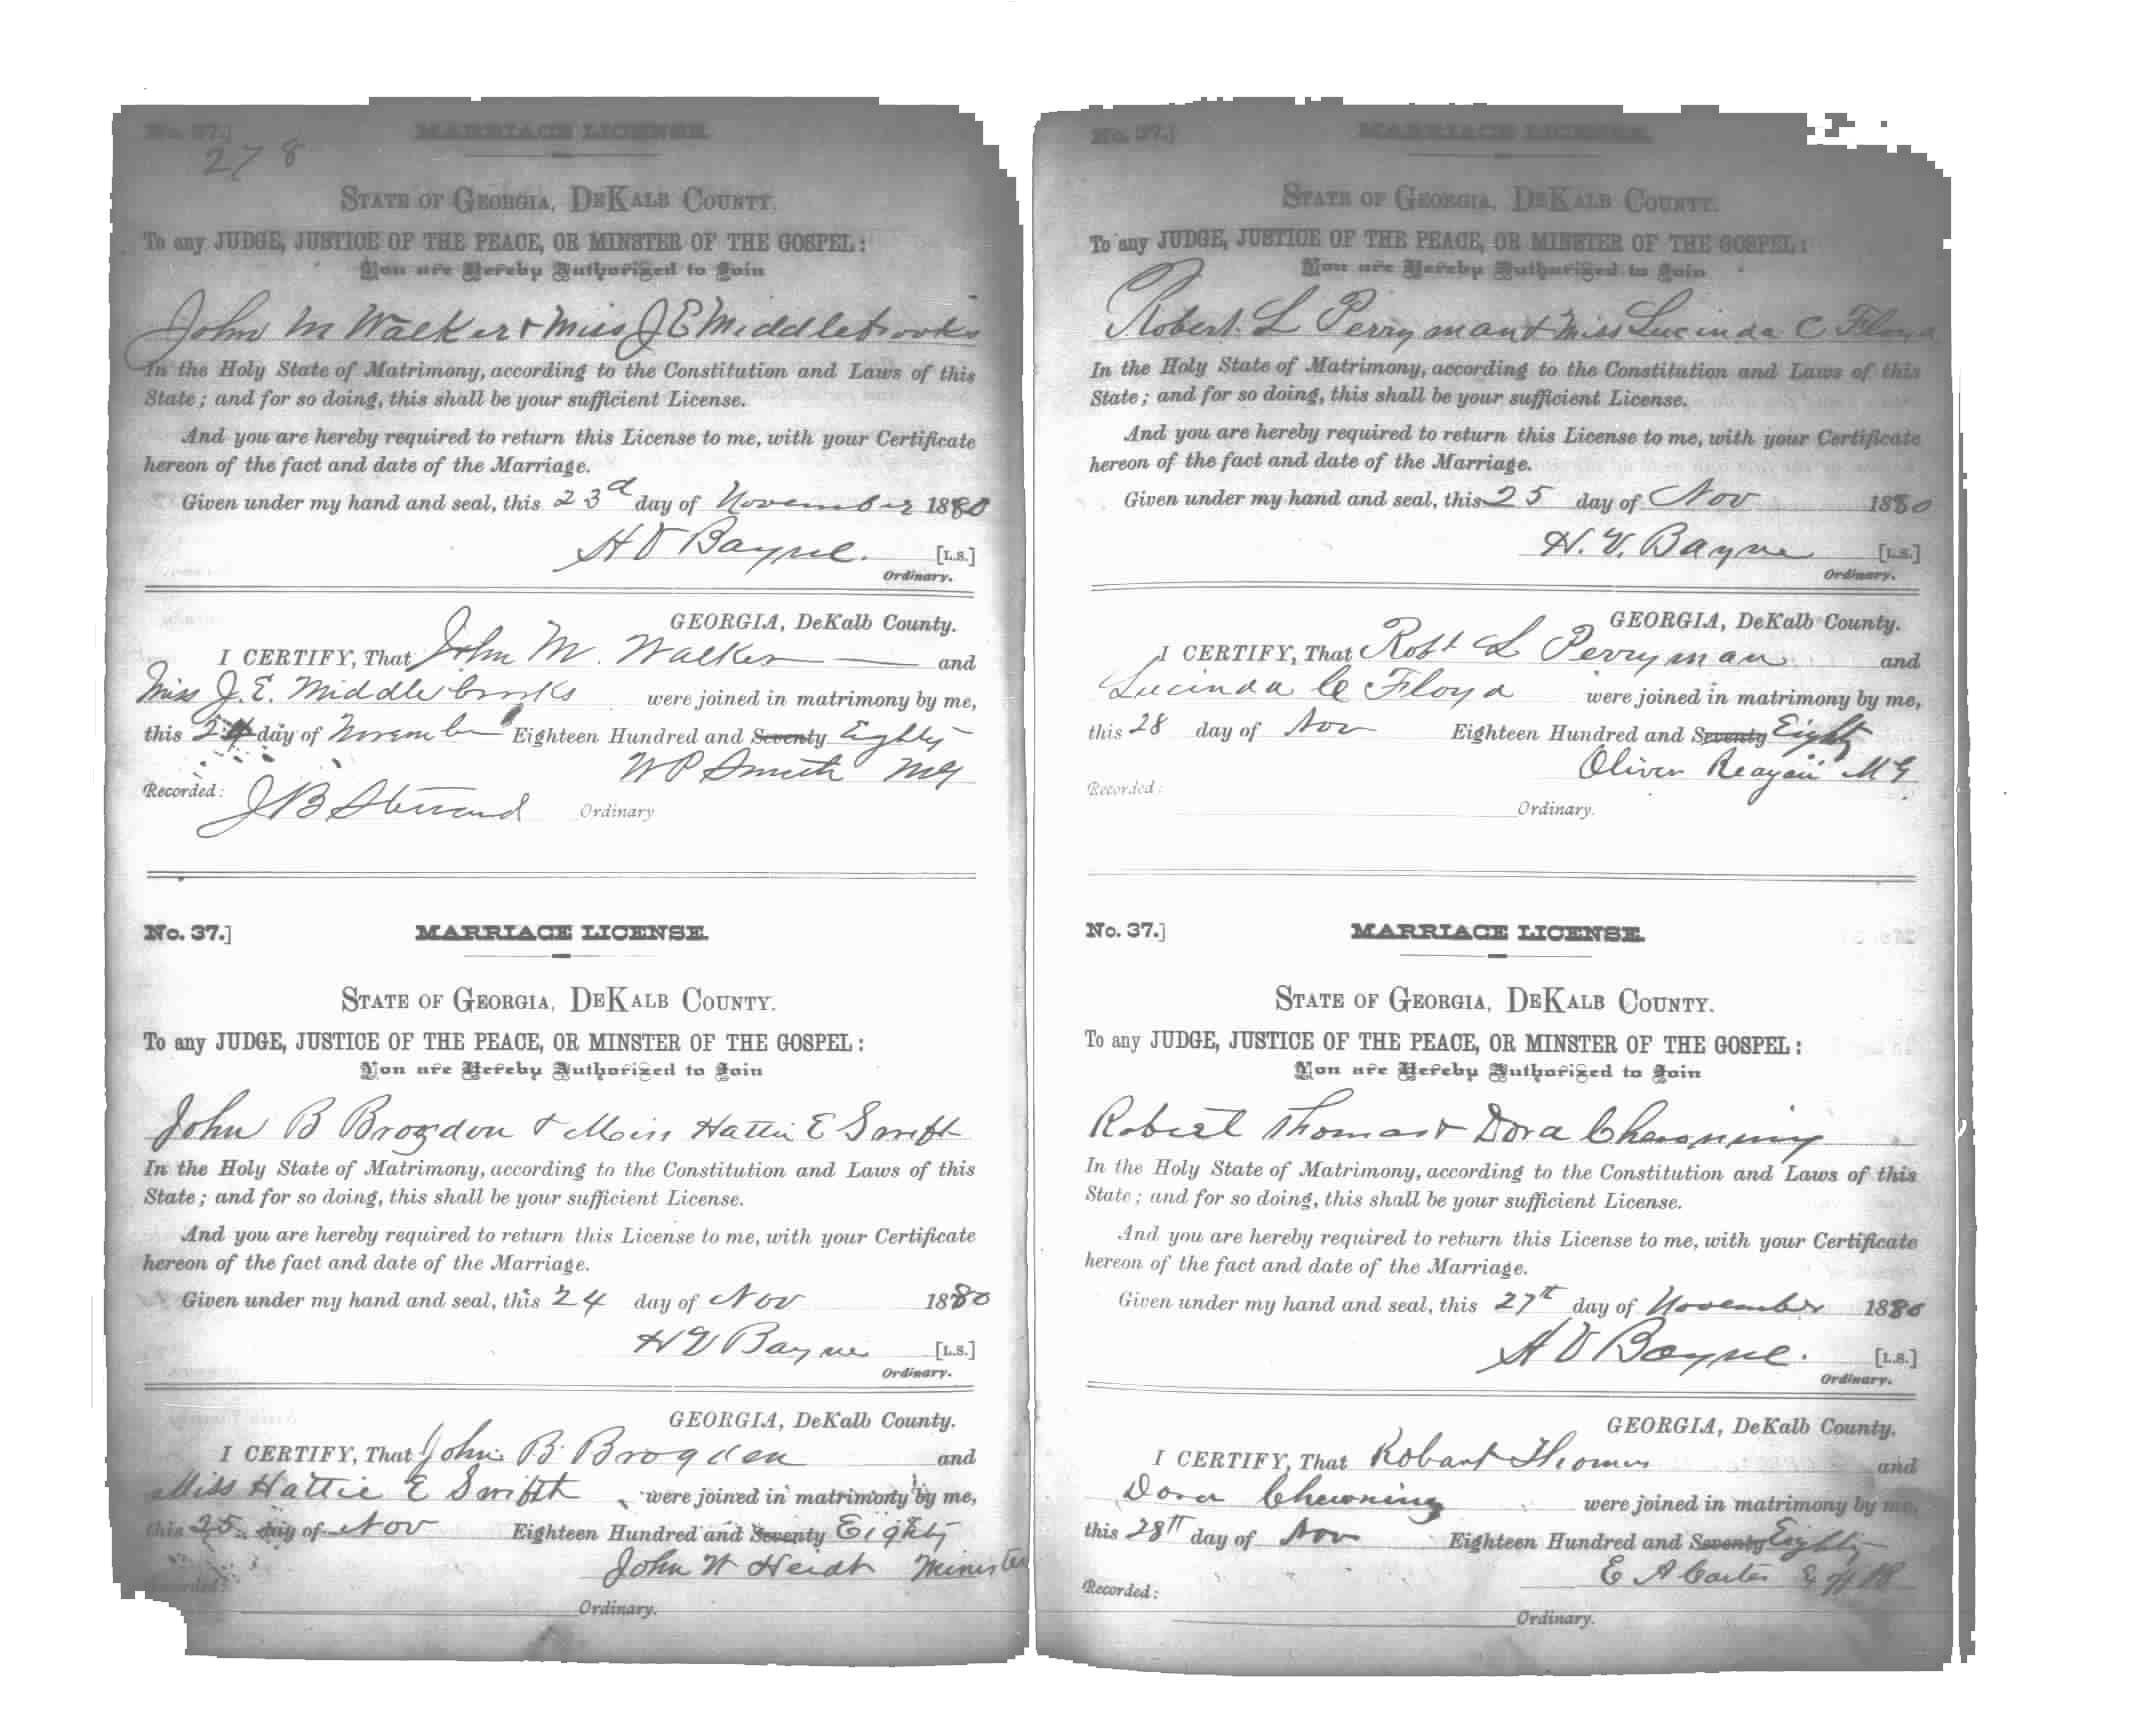 No. 37.]
MARRIAGE LICENSE.
278
STATE OF GEORGIA, DEKALB COUNTY.
To any JUDGE, JUSTICE OF THE PEACE, OR MINSTER OF THE GOSPEL:
You are Hereby Authorized to Join
John M Walker & Miss J E Middlebrooks
In the Holy State of Matrimony, according to the Constitution and Laws of this
State; and for so doing, this shall be your sufficient License.
And you are hereby required to return this License to me, with your Certificate
hereon of the fact and date of the Marriage.
Given under my hand and seal, this 23d day of November 1880
H V Bayne. [L.S.]
Ordinary.
GEORGIA, DeKalb County.
I CERTIFY, That John M. Walker and
Miss J. E. Middlebrooks were joined in matrimony by me,
this 24 day of November Eighteen Hundred and Seventy Eighty
W P Smith MG
Recorded:
J B Steward Ordinary
No. 37.]
MARRIAGE LICENSE.
STATE OF GEORGIA, DEKALB COUNTY.
To any JUDGE, JUSTICE OF THE PEACE, OR MINSTER OF THE GOSPEL:
You are Hereby Authorized to Join
John B Brogdon & Miss Hattie E Swift
In the Holy State of Matrimony, according to the Constitution and Laws of this
State; and for so doing, this shall be your sufficient License.
And you are hereby required to return this License to me, with your Certificate
hereon of the fact and date of the Marriage.
Given under my hand and seal, this 24 day of Nov 1880
H V Bayne [L.S.]
Ordinary.
GEORGIA, DeKalb County.
I CERTIFY, That John B. Brogden and
Miss Hattie E Swift were joined in matrimony by me,
this 25 day of Nov Eighteen Hundred and Seventy Eighty
John W Heidt Minister
Recorded:
Ordinary.
No. 37.]
MARRIAGE LICENSE.
STATE OF GEORGIA, DEKALB COUNTY.
To any JUDGE, JUSTICE OF THE PEACE, OR MINSTER OF THE GOSPEL:
You are Hereby Authorized to Join
Robert L Perryman & Miss Lucinda C Floyd
In the Holy State of Matrimony, according to the Constitution and Laws of this
State; and for so doing, this shall be your sufficient License.
And you are hereby required to return this License to me, with your Certificate
hereon of the fact and date of the Marriage.
Given under my hand and seal, this 25 day of Nov 1880
H. V. Bayne [L.S.]
Ordinary.
GEORGIA, DeKalb County.
I CERTIFY, That Robt L Perryman and
Lucinda C Floyd were joined in matrimony by me,
this 28 day of Nov Eighteen Hundred and Seventy Eighty
Oliver Reagan M G
Recorded:
Ordinary.
No. 37.]
MARRIAGE LICENSE.
STATE OF GEORGIA, DEKALB COUNTY.
To any JUDGE, JUSTICE OF THE PEACE, OR MINSTER OF THE GOSPEL:
You are Hereby Authorized to Join
Robert Thomas & Dora Chewning
In the Holy State of Matrimony, according to the Constitution and Laws of this
State; and for so doing, this shall be your sufficient License.
And you are hereby required to return this License to me, with your Certificate
hereon of the fact and date of the Marriage.
Given under my hand and seal, this 27th day of November 1880
H V Bayne. [L.S.]
Ordinary.
GEORGIA, DeKalb County.
I CERTIFY, That Robart Thomas and
Dora Chewning were joined in matrimony by me,
this 28th day of Nov Eighteen Hundred and Seventy Eighty
E A Carter
Recorded:
Ordinary.